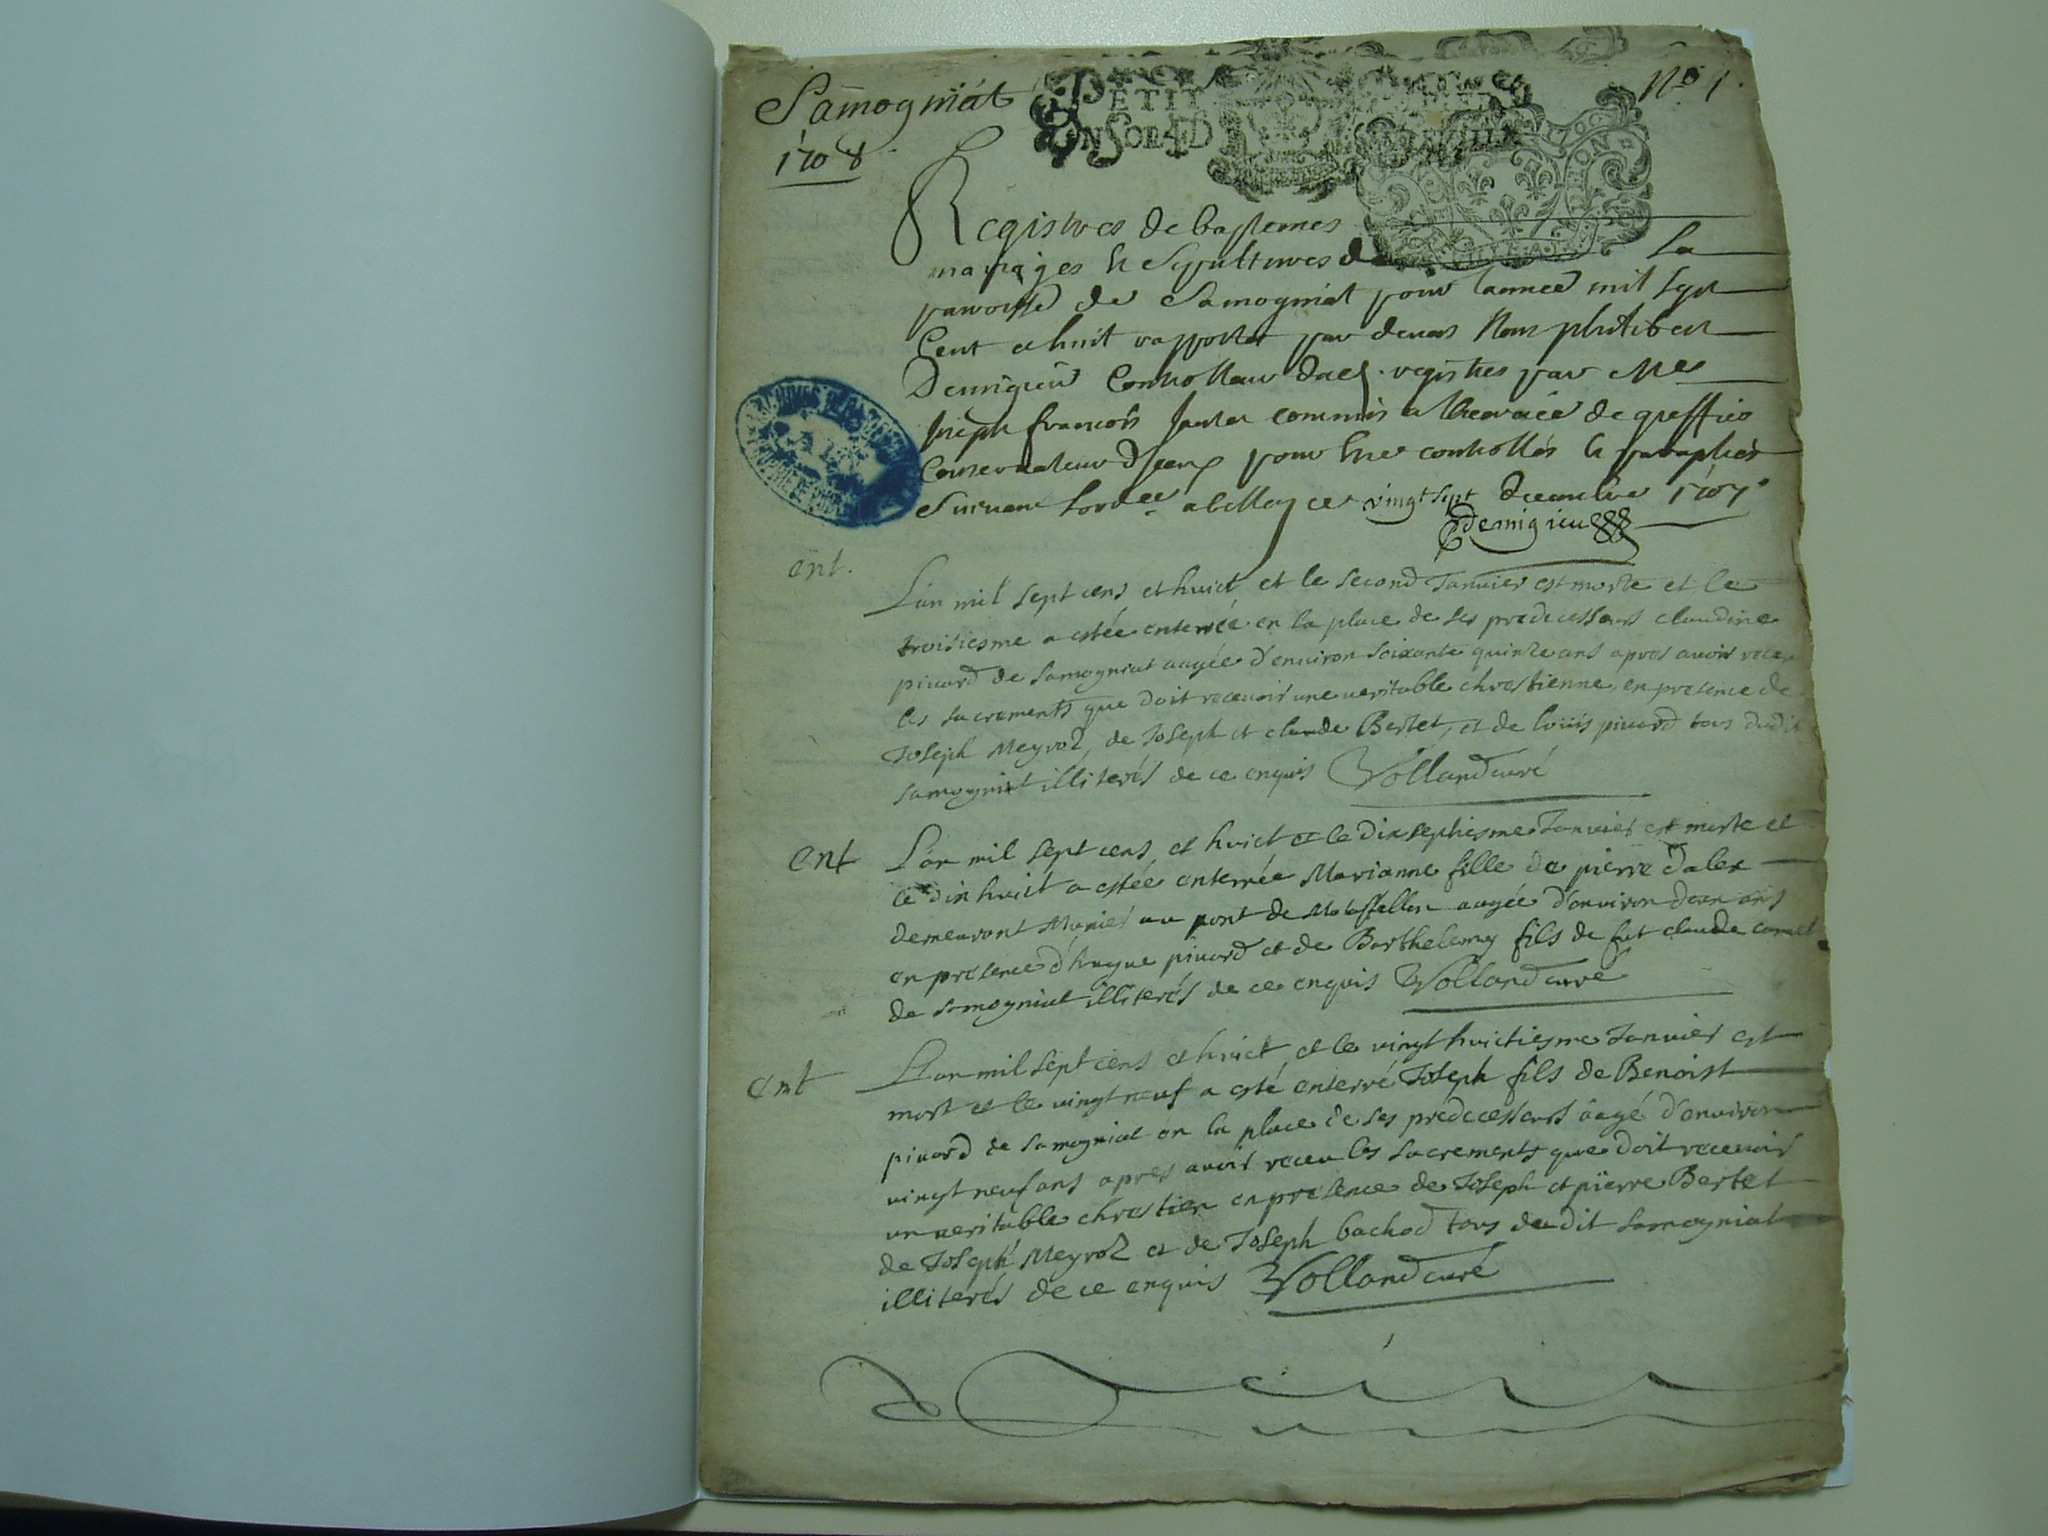 Samogniat
1708
No 1.
PETIT
Registres de baptemes
mariages et Sepultures de la
parroisse de Samogniat pour lannee mil sept
Cent et huit rapportes par devers Nous philibert
Demigieu Controlleur desd. registres par Me
Joseph françois commis a lexercice de greffier
Conservateur d'Iceux pour Estre controllés et paraphés
Suivant lordce a belley ce vingt sept decembre 1707
Demigieu
ent.
L'an mil sept cens et huict et le second Janvier est morte et le
troisiesme a estée enterrée en la place de ses predecesseurs claudine
pivard de samogniat aagée d'environ soixante quinze ans apres avoir receu
les sacrements que doit recevoir une veritable chrestienne, en presence de
Joseph Meyroz, de Joseph et claude Bertet, et de loüis pivard tous dudit
samogniat illiterés de ce enquis Volland curé
ent
L'an mil sept cens et huict et le dix septiesme Janvier est morte et
le dix huict a estée enterrée Marianne fille de pierre dalex
demeurant Munier au pont de aagée d'environ deux ans
en presence d'hugue pivard et de Barthelemy fils de fut claude
de samogniat illiterés de ce enquis Volland curé
ent
L'an mil sept cens et huict et le vingt huictiesme Janvier est
mort et le vingt neuf a esté enterré Joseph fils de Benoist
pivard de samogniat en la place de ses predecesseurs aagé d'environ
vingt neuf ans apres avoir receu les sacrements que doit recevoir
un veritable chrestien en presence de Joseph et pierre Bertet
de Joseph Meyroz et de Joseph bachod tous dudit samogniat
illiterés de ce enquis Volland curé